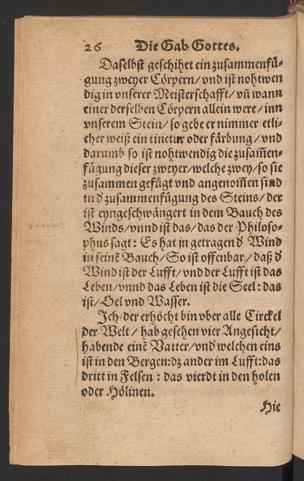 26 Die Gab Gottes.
Daselbst geschihet ein zusammenfü-
gung zweyer Cörpern/ vnd ist nohtwen
dig in vnserer Meisterschafft/ vñ wann
einer derselben Cörpern allein were/ inn
vnserem Stein/ so gebe er nimmer etli-
cher weiß ein tinctur oder färbung/ vnd
darumb so ist nohtwendig die zusam̃en-
fügung dieser zweyer/ welche zwey/ so sie
zusammen gefügt vnd angenom̃en sind
in d' zusammenfügung des Steins/ der
ist eyngeschwängert in dem Bauch des
Winds/ vnnd ist das/ das der Philoso-
phus sagt: Es hat jn getragen d' Wind
in seinẽ Bauch/ So ist offenbar/ daß d'
Wind ist der Lufft/ vnd der Lufft ist das
Leben/ vnnd das Leben ist die Seel: das
ist/ Oel vnd Wasser.
Ich der erhöcht bin vber alle Circkel
der Welt/ hab gesehen vier Angesicht/
habende einẽ Vatter/ vnd welchen eins
ist in den Bergen: dz ander im Lufft: das
dritt in Felsen: das vierdt in den holen
oder Hölinen.
Hie